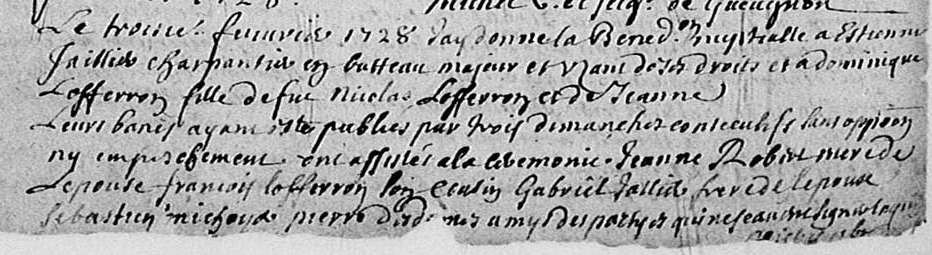 de Gueugnon
Le troisie. feuvrie 1728 Jay donne la Bened.on nuptialle a Estienne
Jaillie charpantie en batteau majeur et uzant de ses droits et a dominique
Lofferron fille de fue Nicolas Lofferron et de Jeanne
Leurs bancs ayant este publies par trois dimanches consecutifs sans oppoōn
ny empeschement. ont assistés a la ceremonie. Jeanne Robert mere de
Lepouse francois lofferron son cousin Gabriel Jallie frere de lepoux
Sebastien pierre amys des partyes qui ne seavent signer